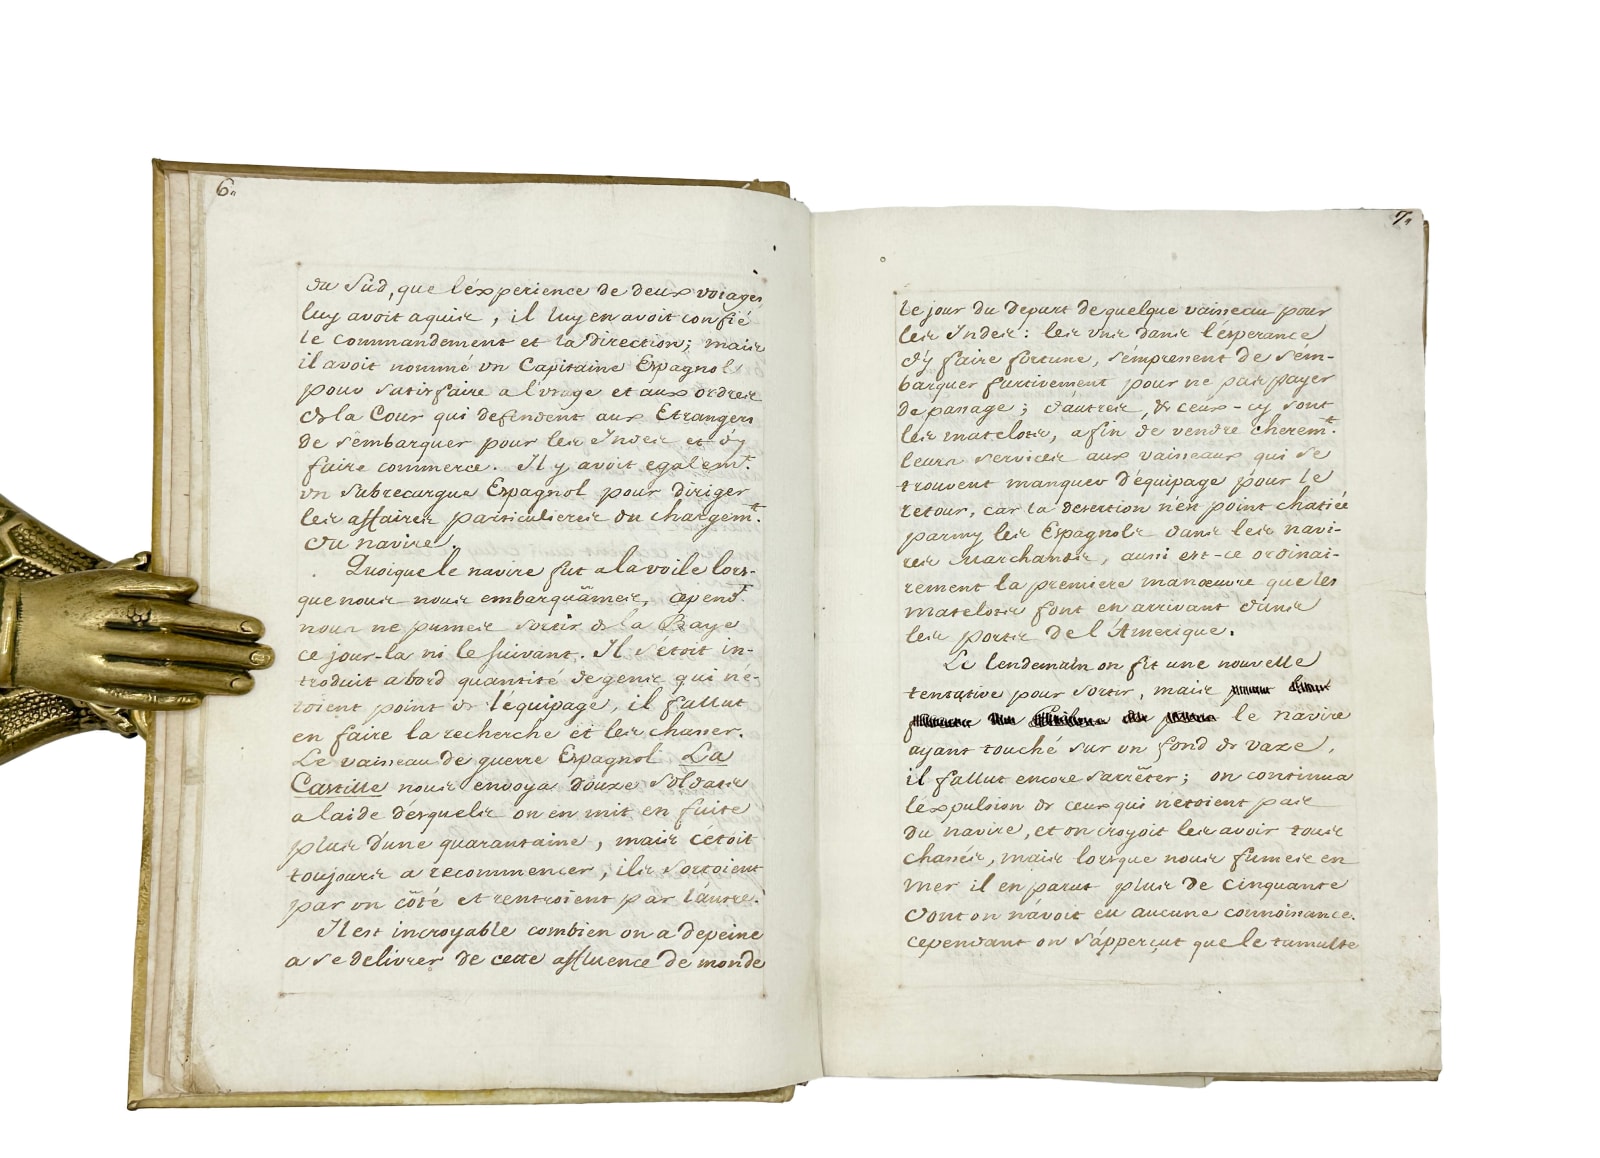 6.
du Sud, que l'éxperience de deux voiages
luy avoit aquise, il luy en avoit confié
le commandement et la direction; mais
il avoit nommé un Capitaine Espagnol
pour satisfaire a l'usage et aux ordres
de la Cour qui defendent aux Etrangers
de s'embarquer pour les Indes et d'y
faire commerce. Il y avoit egalemt.
un subrecargue Espagnol pour diriger
les affaires particulieres du chargemt.
du navire.
Quoique le navire fut a la voile lors-
que nous nous embarquâmes, cepend.t
nous ne pumes sortir de la Baye
ce jour-la ni le suivant. Il s'étoit in-
troduit abord quantité de gens qui n'é-
toient point de l'équipage, il fallut
en faire la recherche et les chasser.
Le vaisseau de guerre Espagnol La
Castille nous envoya douze soldats
a laide desquels on en mit en fuite
plus d'une quarantaine, mais c'étoit
toujours a recommencer, ils sortoient
par un côté et rentroient par l'autre.
Il est incroyable combien on a de peine
a se delivrer de cette affluence de monde
7.
le jour du depart de quelque vaisseau pour
les Indes: les uns dans l'ésperance
d'y faire fortune, s'émpressent de s'ém-
barquer furtivement pour ne pas payer
de passage; d'autres, & ceux-cy sont
les matelots, afin de vendre cheremt.
leurs services aux vaisseaux qui se
trouvent manquer d'équipage pour le
retour, car la desertion n'én point chatiée
parmy les Espagnols dans les navi-
res Marchands, aussi est-ce ordinai-
rement la premiere manœuvre que les
matelots font en arrivant dans
les ports de l'Amerique.
Le lendemain on fit une nouvelle
tentative pour sortir, mais
le navire
ayant touché sur un fond de vaze,
il fallut encore s'arrêter; on continua
l'éxpulsion de ceux qui n'étoient pas
du navire, et on croyoit les avoir tous
chassés, mais lorsque nous fumes en
mer il en parut plus de cinquante
dont on n'avoit eu aucune connoissance.
cependant on s'apperçut que le tumulte